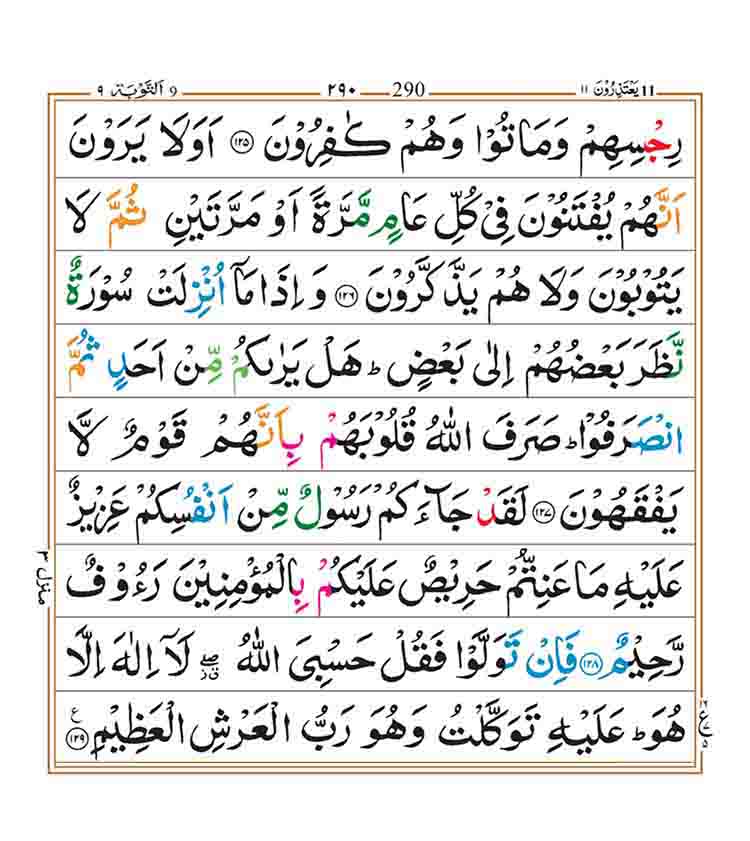 ١١ يَعْتَذِرُوْنَ 11 290 ٢٩٠ 9 اَلتَّوْبَة ٩
رِجْسِهِمْ وَمَاتُوْا وَهُمْ كٰفِرُوْنَ ۝١٢٥ اَوَلَا يَرَوْنَ
اَنَّهُمْ يُفْتَنُوْنَ فِىْ كُلِّ عَامٍ مَّرَّةً اَوْ مَرَّتَيْنِ ثُمَّ لَا
يَتُوْبُوْنَ وَلَا هُمْ يَذَّكَّرُوْنَ ۝١٢٦ وَاِذَا مَاۤ اُنْزِلَتْ سُوْرَةٌ
نَّظَرَ بَعْضُهُمْ اِلٰى بَعْضٍؕ هَلْ يَرٰىكُمْ مِّنْ اَحَدٍ ثُمَّ
انْصَرَفُوْاؕ صَرَفَ اللّٰهُ قُلُوْبَهُمْ بِاَنَّهُمْ قَوْمٌ لَّا
يَفْقَهُوْنَ ۝١٢٧ لَقَدْ جَآءَكُمْ رَسُوْلٌ مِّنْ اَنْفُسِكُمْ عَزِيْزٌ
عَلَيْهِ مَا عَنِتُّمْ حَرِيْصٌ عَلَيْكُمْ بِالْمُؤْمِنِيْنَ رَءُوْفٌ
رَّحِيْمٌ ۝١٢٨ فَاِنْ تَوَلَّوْا فَقُلْ حَسْبِىَ اللّٰهُ ۖ لَاۤ اِلٰهَ اِلَّا
هُوَؕ عَلَيْهِ تَوَكَّلْتُ وَهُوَ رَبُّ الْعَرْشِ الْعَظِيْمِ ۝١٢٩ ع
منزل ٣
ع